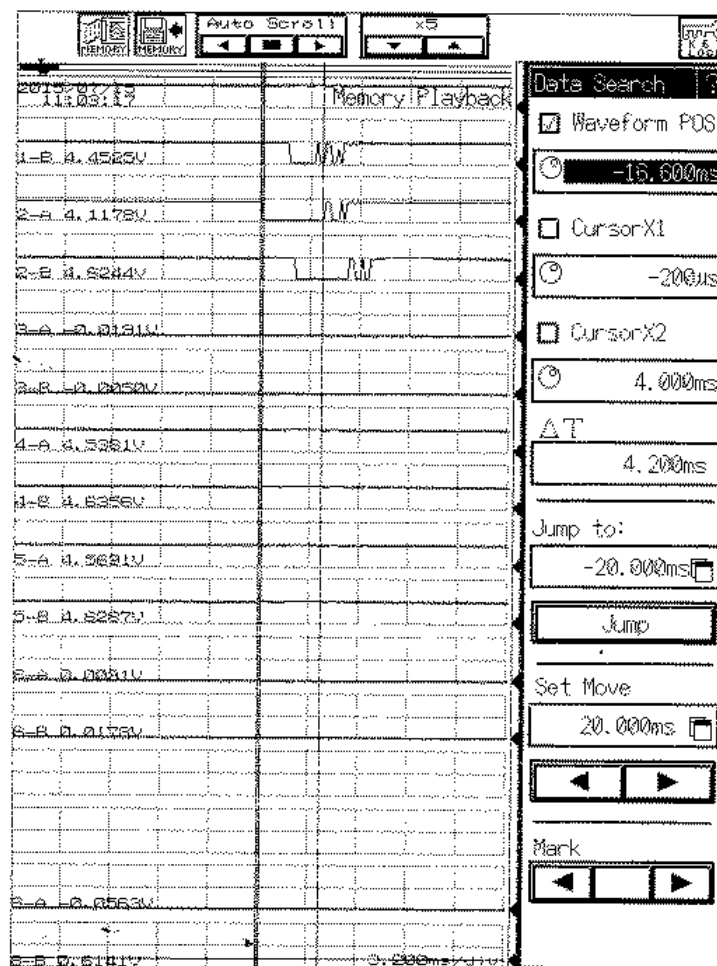 Auto Scroll
x5
MEMORY
MEMORY
2015/07/15
11:03:17
Memory Playback
1-B 4.4525V
2-A 4.1178V
2-B 4.6244V
3-A -0.0191V
3-B -0.0050V
4-A 4.5381V
4-B 4.6356V
5-A 4.5691V
5-B 4.6287V
6-A 0.0081V
6-B 0.0178V
8-A -0.0563V
8-B 0.6141V
3.200ms/div
Data Search ?
Waveform POS
-16.600ms
CursorX1
-200µs
CursorX2
4.000ms
ΔT
4.200ms
Jump to:
-20.000ms
Jump
Set Move
20.000ms
Mark